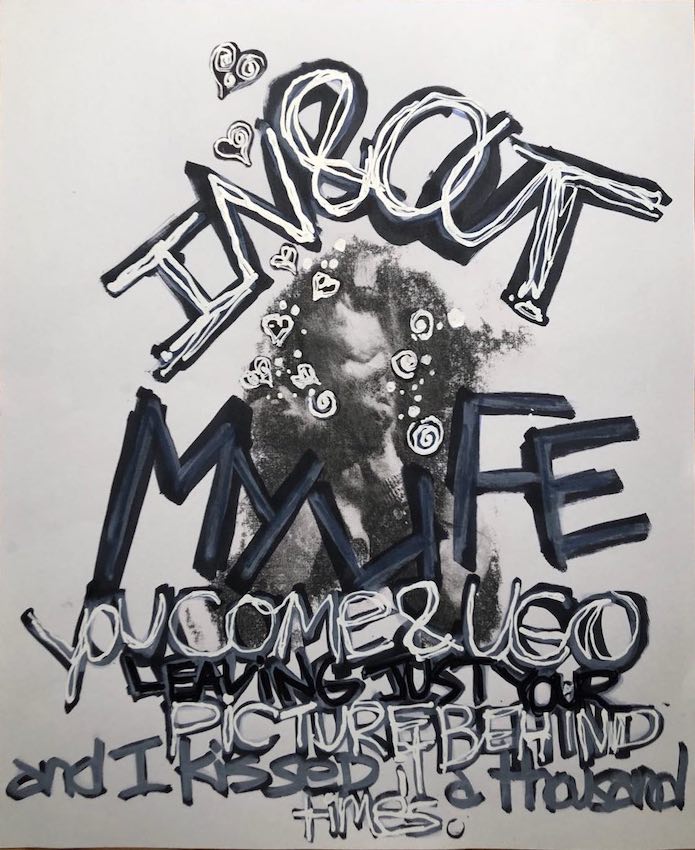 IN&OUT
MY LIFE
YOU COME & U GO
LEAVING JUST YOUR
PICTURE BEHIND
and I kissed it a thousand
times.